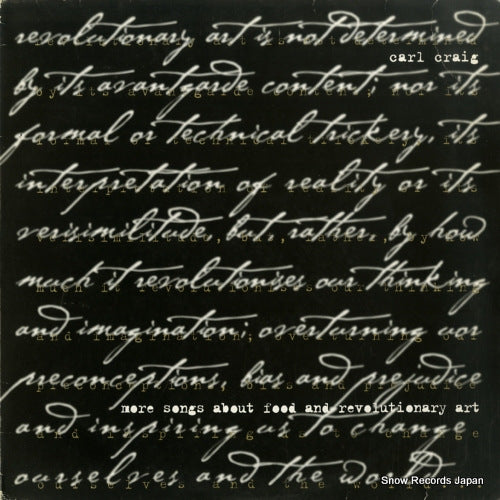 revolutionary art is not determined
carl craig
by its avantgarde content, nor its
formal or technical trickery, its
interpretation of reality or its
verisimilitude, but, rather, by how
much it revolutionises our thinking
and imagination; overturning our
preconceptions, bias and prejudice
more songs about food and revolutionary art
and inspiring us to change
ourselves and the world.
Snow Records Japan